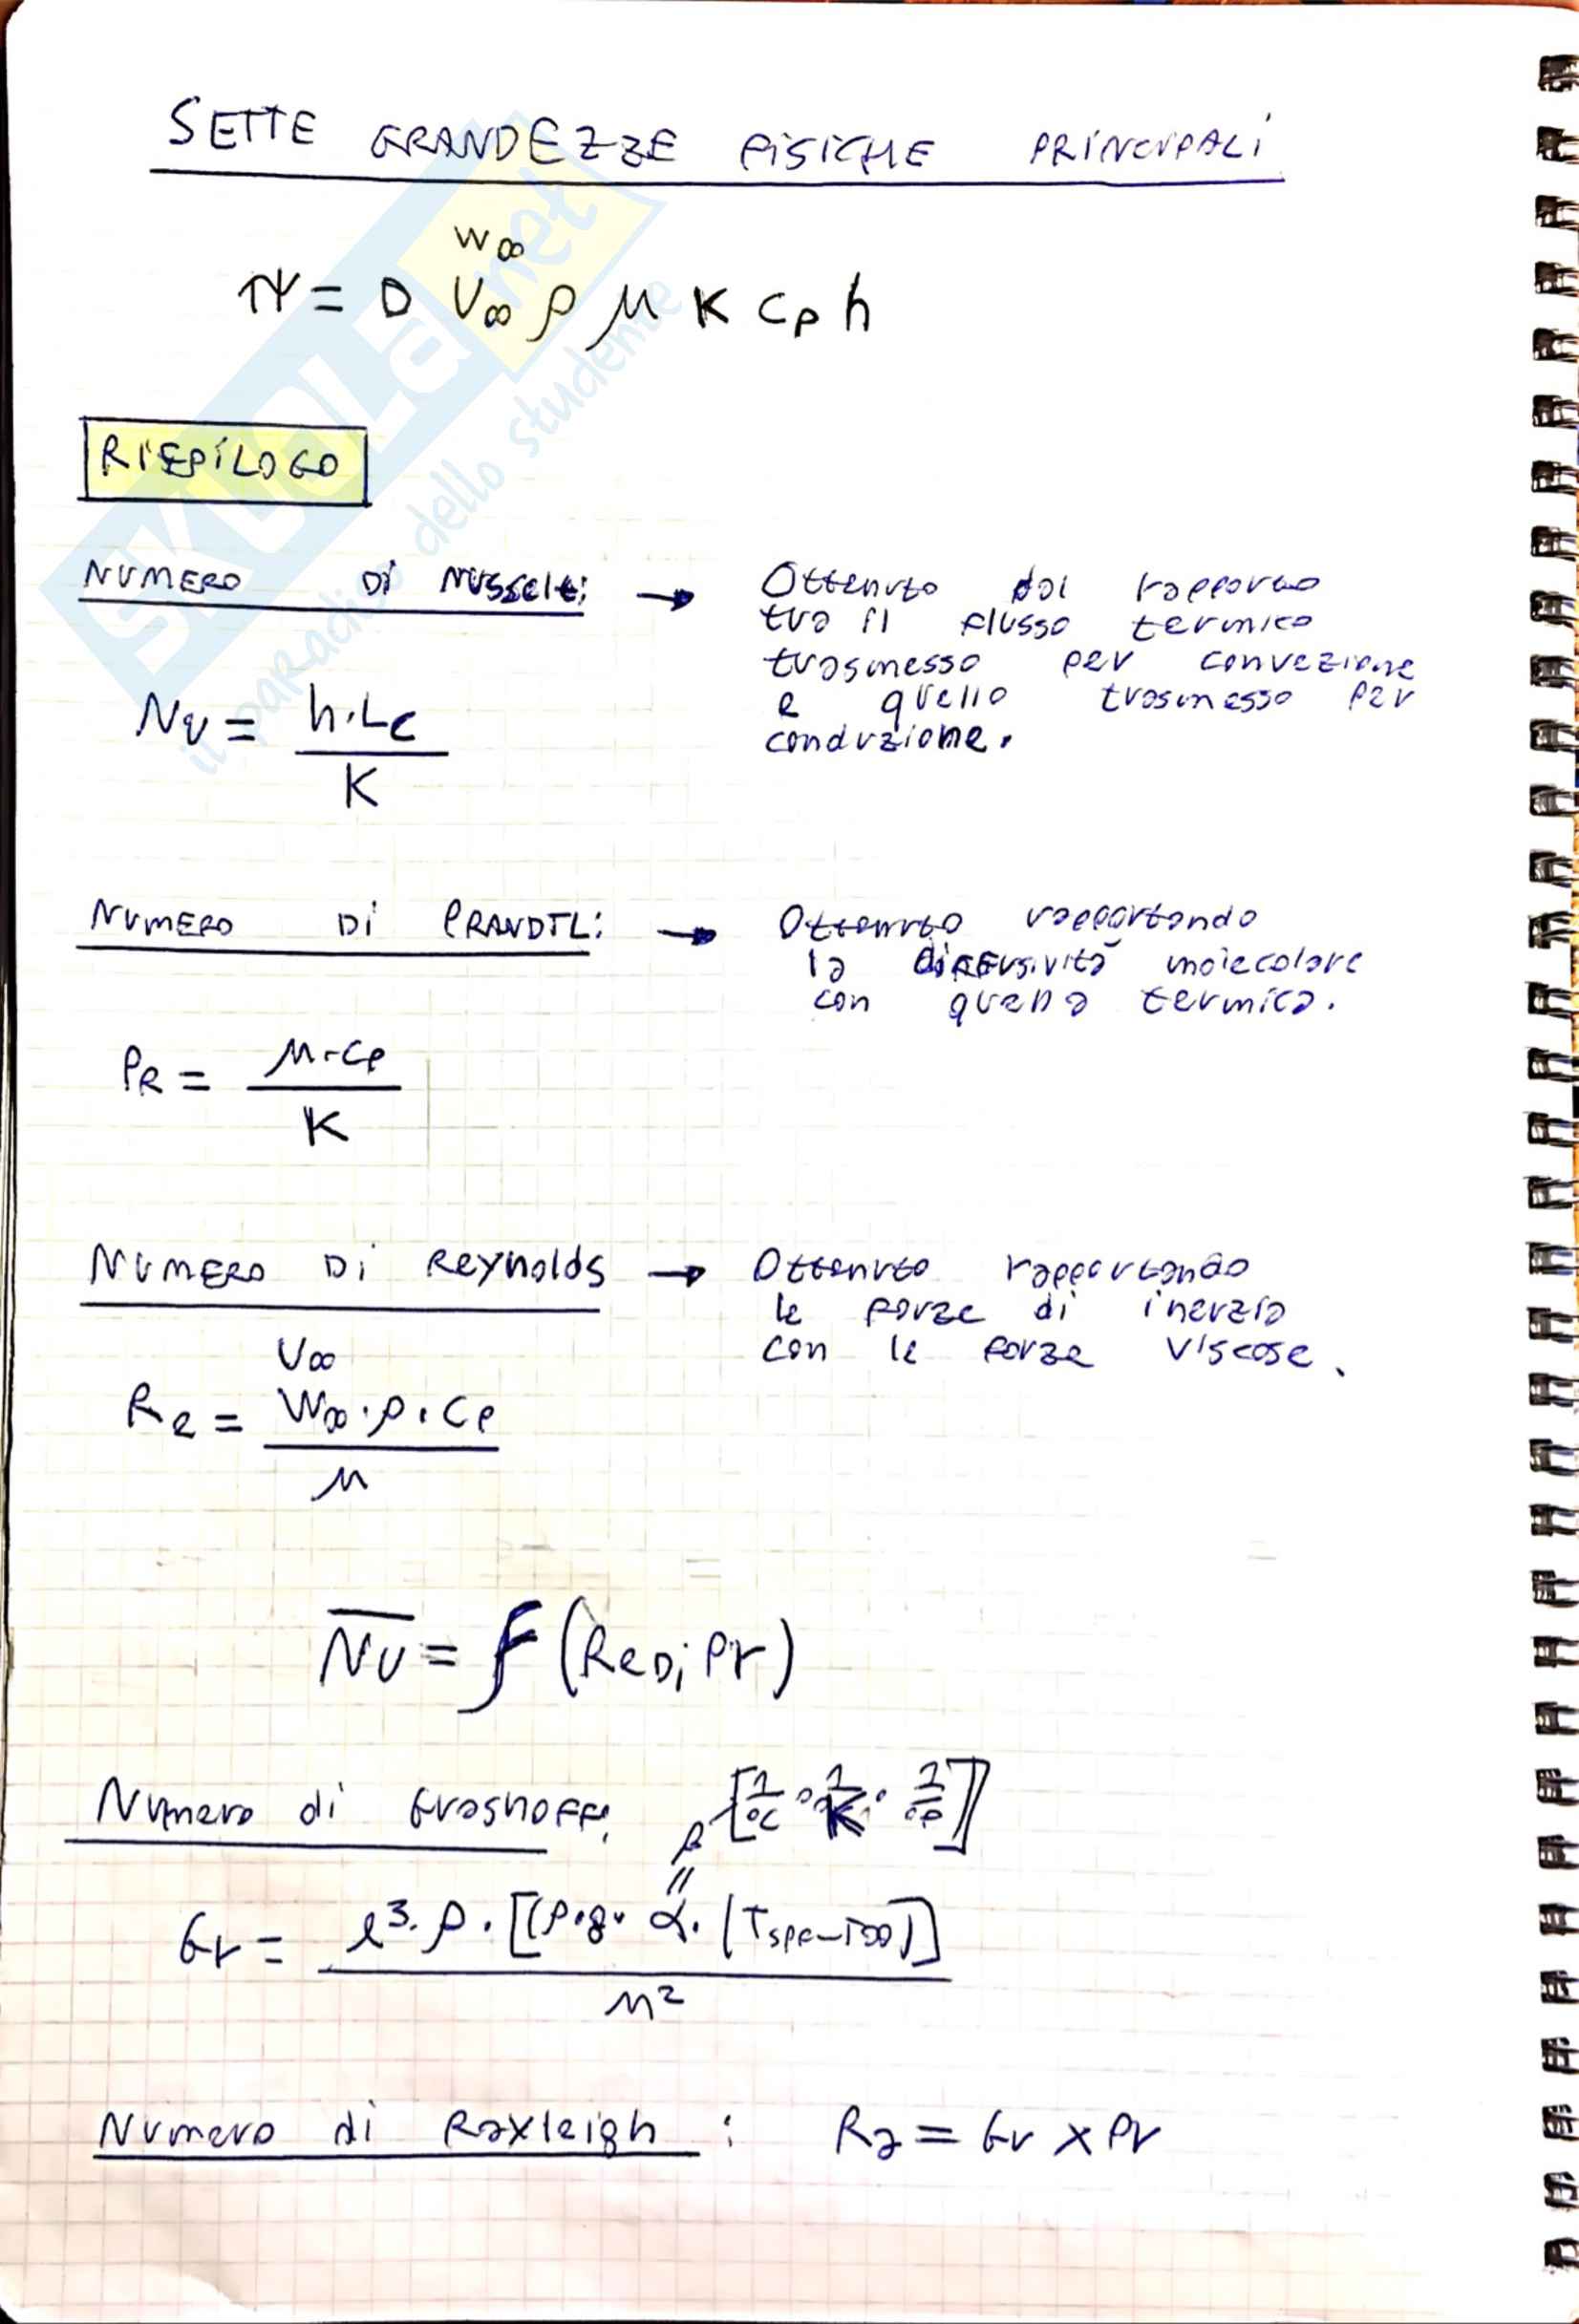 SETTE GRANDEZZE FISICHE PRINCIPALI
W∞
π = D V∞ ρ μ K Cp h
RIEPILOGO
NUMERO DI NUSSELT: → Ottenuto dal rapporto
tra il flusso termico
trasmesso per convezione
e quello trasmesso per
conduzione.
Nu = h·Lc / K
NUMERO DI PRANDTL: → Ottenuto rapportando
la diffusività molecolare
con quella termica.
PR = μ·cp / K
NUMERO DI Reynolds → Ottenuto rapportando
le forze di inerzia
con le forze viscose.
V∞
Re = W∞·ρ·Cp / μ
Nu = f (ReD; Pr)
Numero di Grashoff:
β [1/°C · 1/K · 1/°F]
Gr = l³·ρ·[(ρ·g·α·(Tsup-T∞)] / μ²
Numero di Rayleigh : Ra = Gr x Pr
SKUOLA.net
il paradiso dello studente